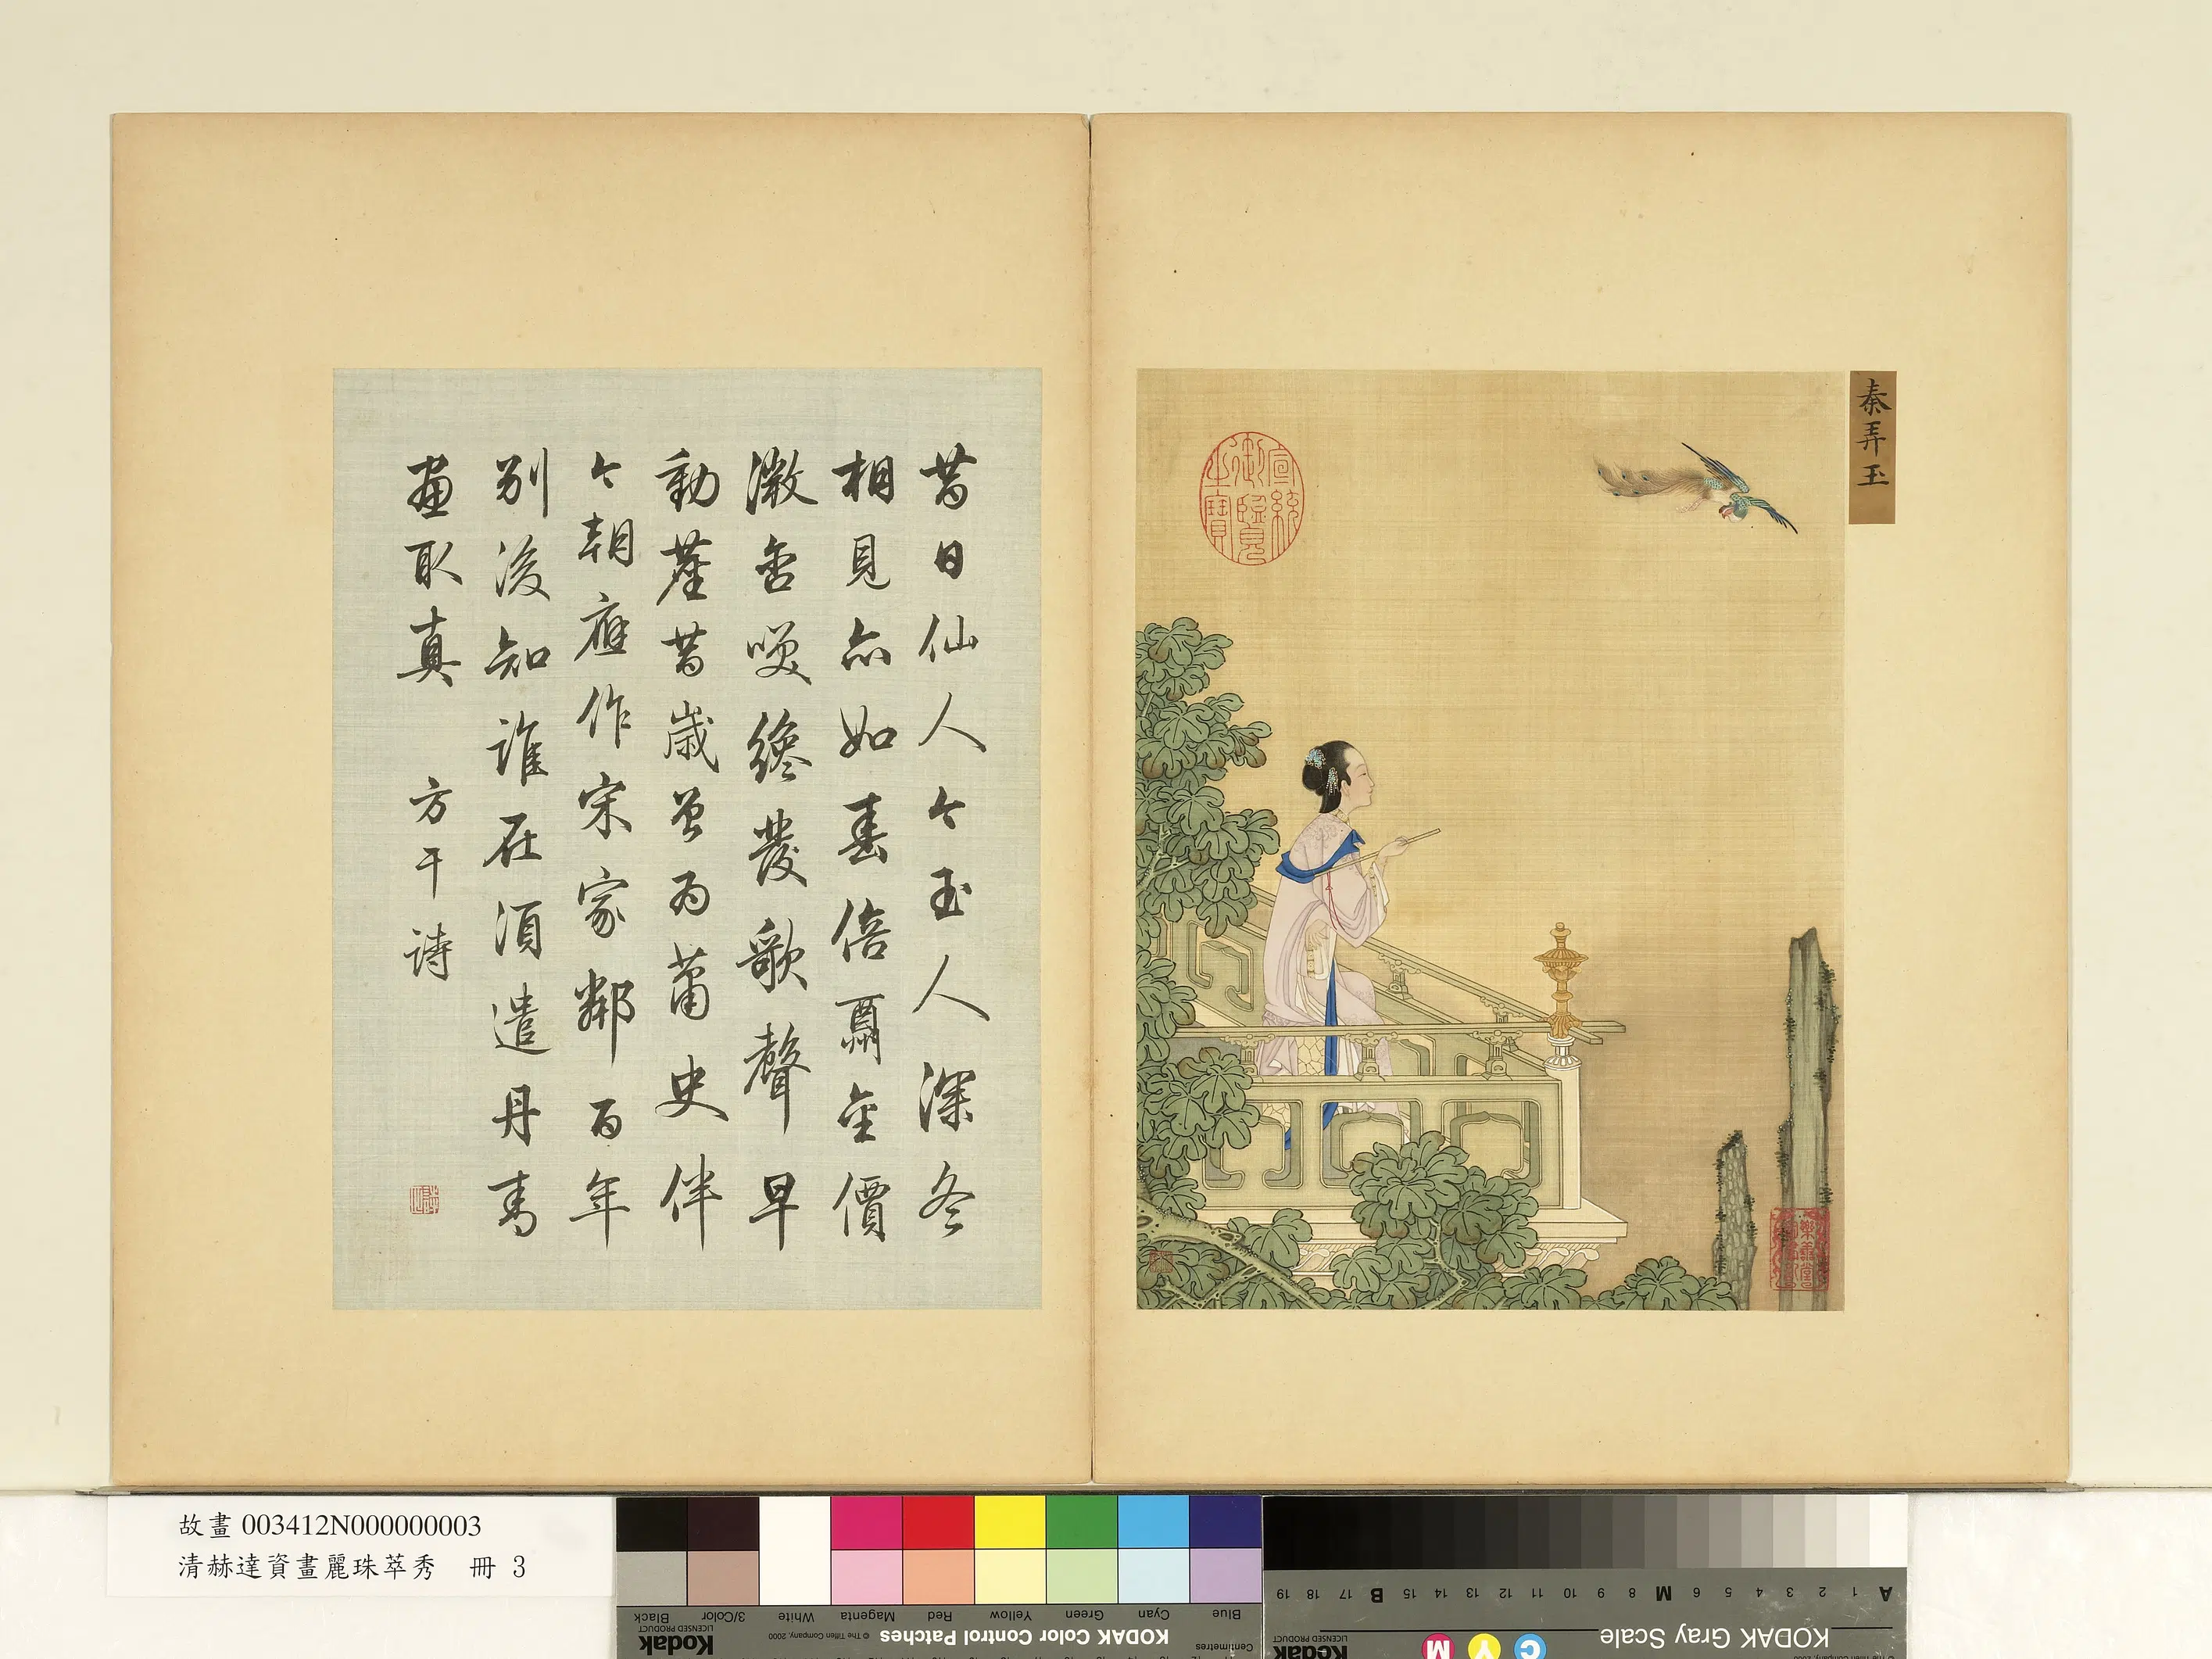 秦弄玉
宣統御覽之寶
樂善堂圖書記
昔日仙人今玉人深冬
相見亦如春倍酬金價
微含笑纔發歌聲早
動塵昔歲曾為蕭史伴
今朝應作宋家鄰百年
別後知誰在須遣丹青
畫取真 方干詩
故畫 003412N000000003
清赫達資畫麗珠萃秀 冊 3
Blue Cyan Green Yellow Red Magenta White 3/Color Black
Centimetres
KODAK Color Control Patches
© The Tiffen Company, 2000
Kodak
LICENSED PRODUCT
A 1 2 3 4 5 6 M 8 9 10 11 12 13 14 15 B 17 18 19
KODAK Gray Scale
C Y M
Kodak
LICENSED PRODUCT